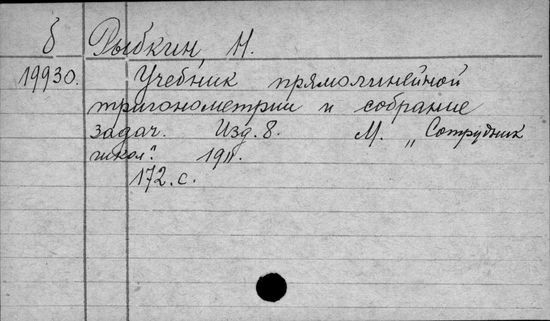 б Рыбкин, Н.
19930. Учебник прямолинейной
тригонометрии и собрание
задач. Изд. 8. М. „Сотрудник
школ". 1911.
172. с.